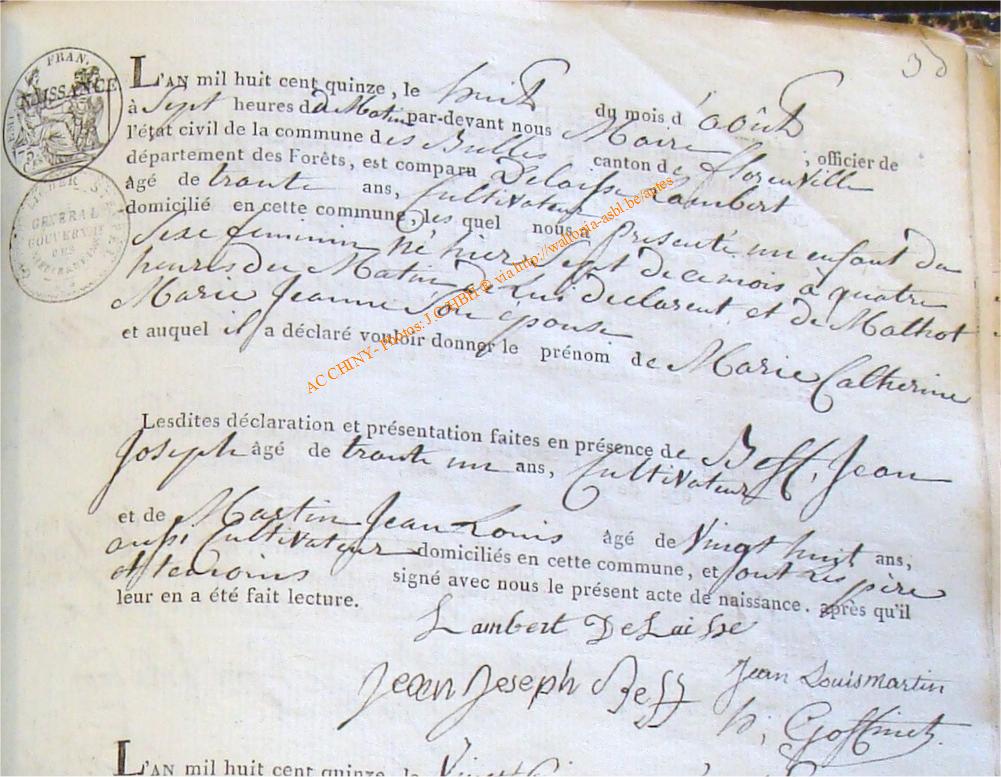 30
FRAN.
NAISSANCE
L'AN mil huit cent quinze, le huit du mois d'août
à Sept heures du Matin par-devant nous Maire, officier de
l'état civil de la commune des Bulles canton de Florenville
département des Forêts, est comparu Delaisse Lambert
âgé de trante ans, Cultivateur
domicilié en cette commune, les quel nous a présenté un enfant du
Sexe feminin né hier Sept de ce mois a quatre
heures du Matin de Lui declarent et de Mathot
Marie Jeanne Son epouse
et auquel il a déclaré vouloir donner le prénom de Marie Catherine
Lesdites déclaration et présentation faites en présence de Beff, Jean
Joseph âgé de trante un ans, Cultivateur
et de Martin Jean Louis âgé de Vingt huit ans,
aussi Cultivateur domiciliés en cette commune, et ont les père
et temoins signé avec nous le présent acte de naissance, après qu'il
leur en a été fait lecture.
Lambert DeLaisse
Jean Joseph Beff
Jean Louis martin
h, Goffinet.
L'AN mil huit cent quinze, le Vingt
GENERAL
GOUVERN
DES
AC CHINY - Photos: J.C.HBH ® via http://wallonia-asbl.be/aptes